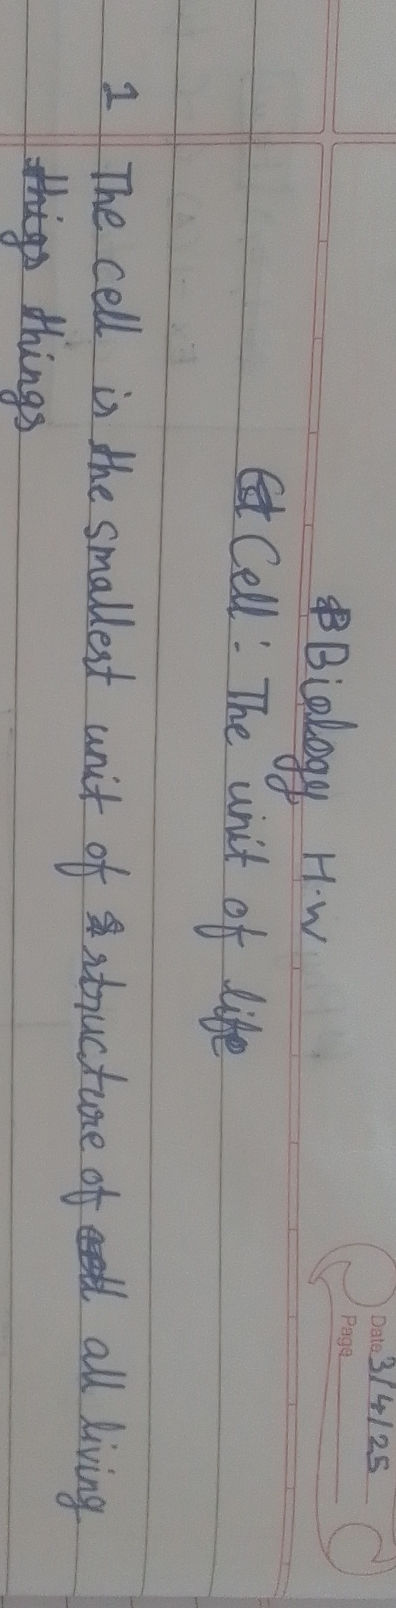 Date 3/4/25
Page
Biology H.W
Cell : The unit of life
1 The cell is the smallest unit of structure of all living
things things